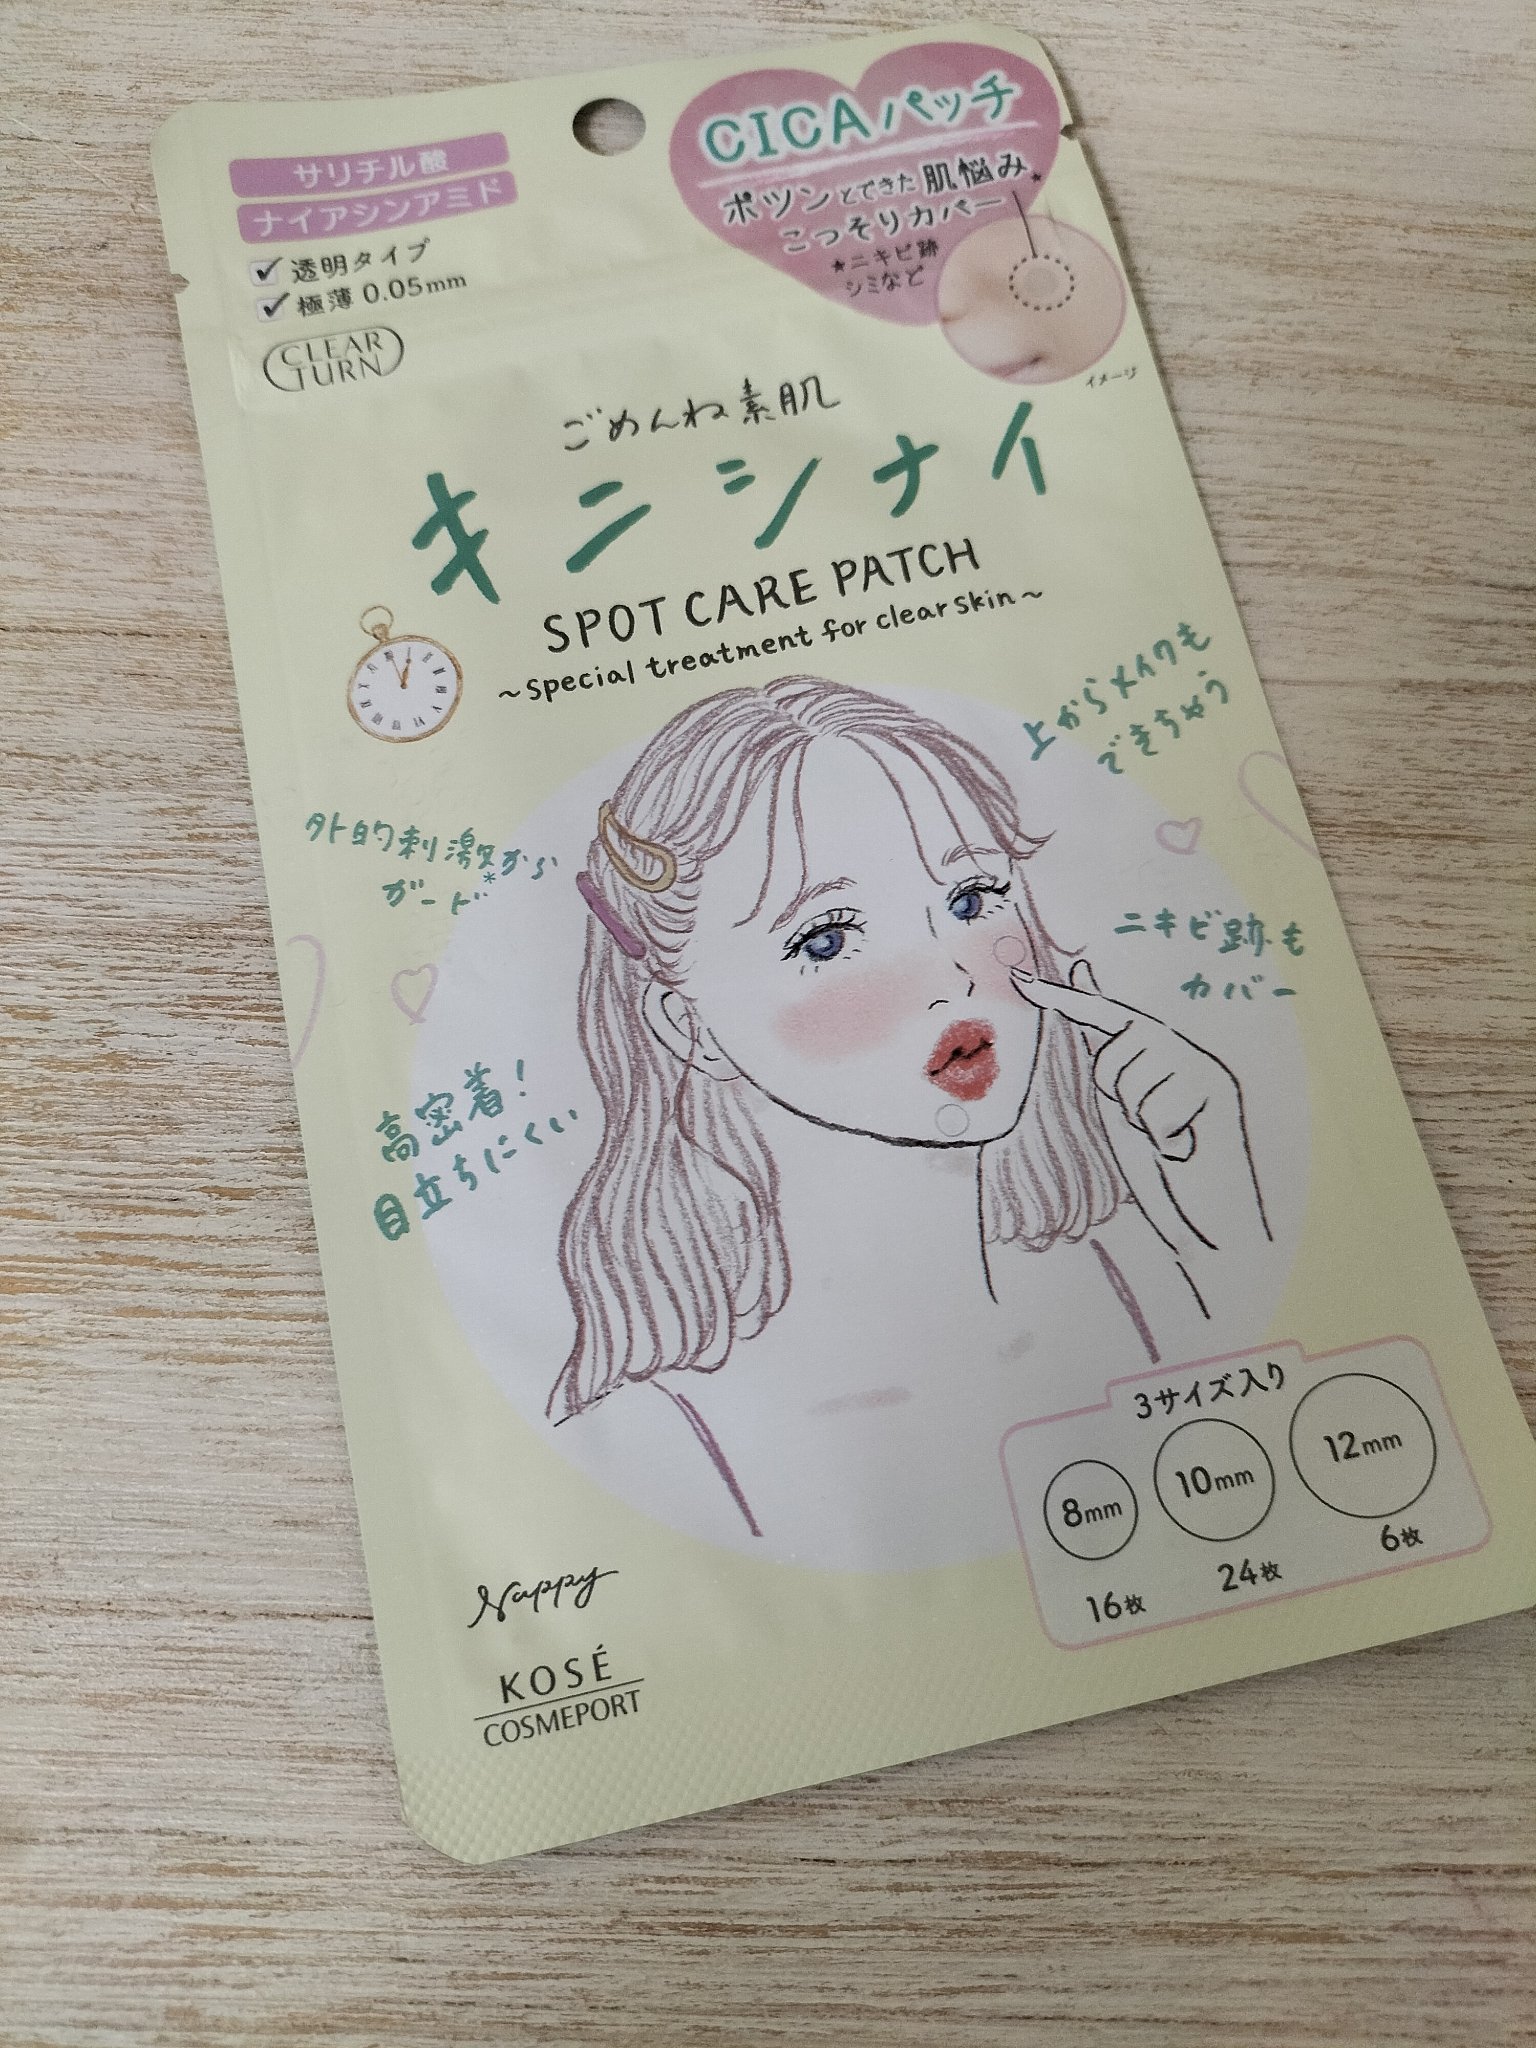 サリチル酸
ナイアシンアミド
透明タイプ
極薄 0.05mm
CLEAR
TURN
CICAパッチ
ポツンとできた肌悩み★
こっそりカバー
★ニキビ跡
シミなど
イメージ
ごめんね素肌
キニシナイ
SPOT CARE PATCH
~special treatment for clear skin~
上からメイクも
できちゃう
外的刺激から
ガード*
ニキビ跡も
カバー
高密着!
目立ちにくい
3サイズ入り
8mm
10mm
12mm
16枚
24枚
6枚
Nappy
KOSÉ
COSMEPORT